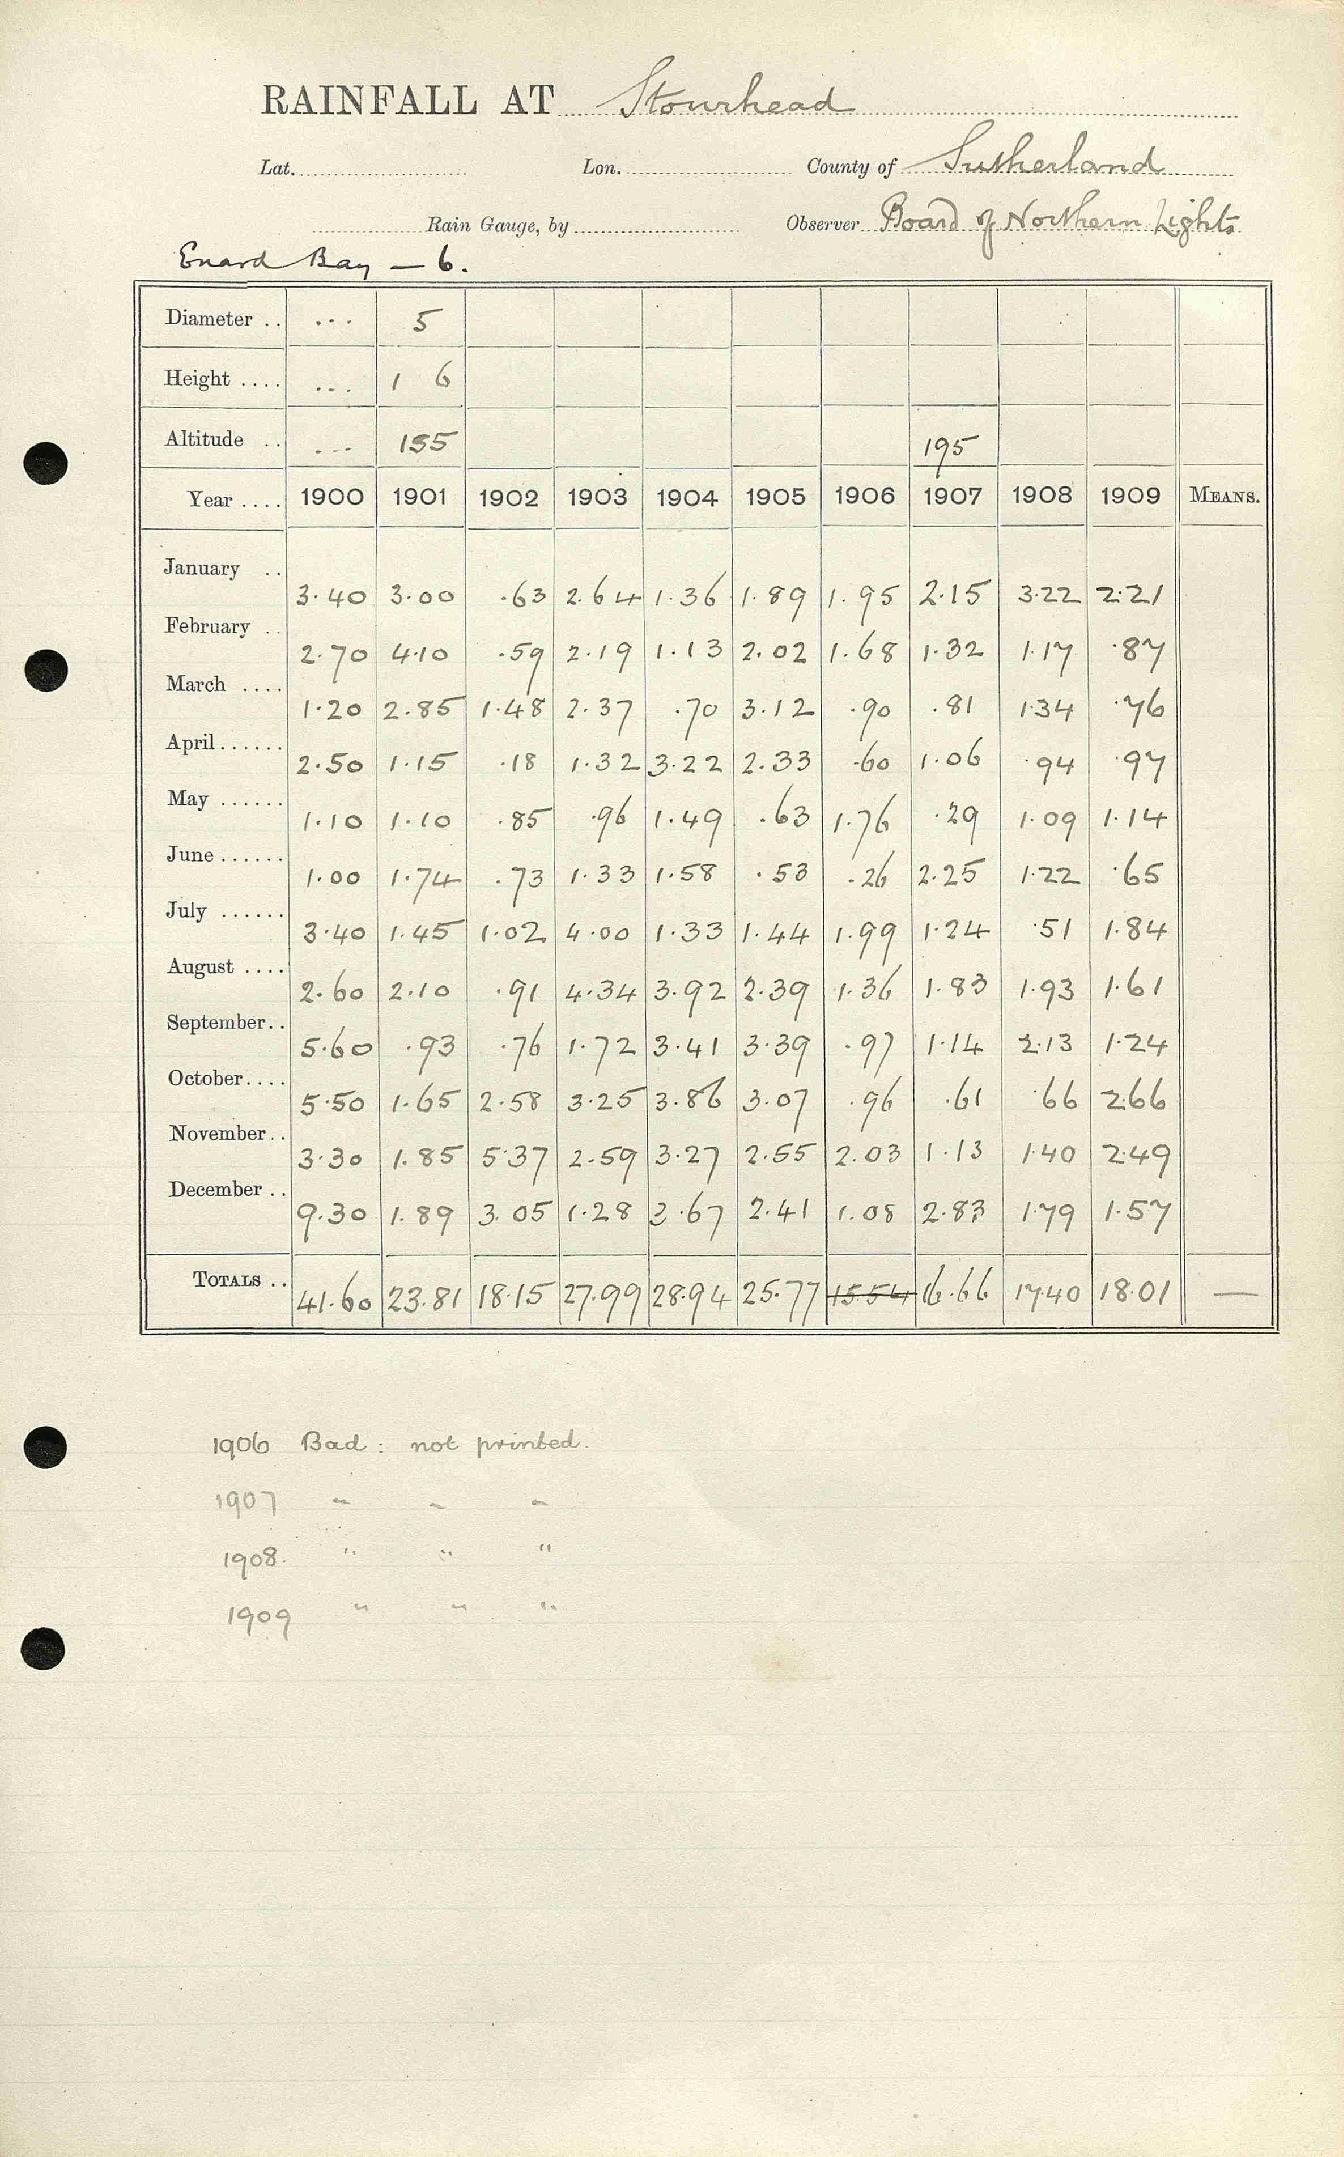 RAINFALL AT Stourhead
Lat. Lon. County of Sutherland
Rain Gauge, by Observer Board of Northern Lights
Enard Bay — 6.
Diameter .. ... 5
Height .... ... 1 6
Altitude .. ... 155 195
Year .... 1900 1901 1902 1903 1904 1905 1906 1907 1908 1909 MEANS.
January .. 3.40 3.00 .63 2.64 1.36 1.89 1.95 2.15 3.22 2.21
February .. 2.70 4.10 .59 2.19 1.13 2.02 1.68 1.32 1.17 .87
March .... 1.20 2.85 1.48 2.37 .70 3.12 .90 .81 1.34 .76
April...... 2.50 1.15 .18 1.32 3.22 2.33 .60 1.06 .94 .97
May ...... 1.10 1.10 .85 .96 1.49 .63 1.76 .29 1.09 1.14
June...... 1.00 1.74 .73 1.33 1.58 .53 .26 2.25 1.22 .65
July ...... 3.40 1.45 1.02 4.00 1.33 1.44 1.99 1.24 .51 1.84
August .... 2.60 2.10 .91 4.34 3.92 2.39 1.36 1.83 1.93 1.61
September.. 5.60 .93 .76 1.72 3.41 3.39 .97 1.14 2.13 1.24
October.... 5.50 1.65 2.58 3.25 3.86 3.07 .96 .61 .66 2.66
November.. 3.30 1.85 5.37 2.59 3.27 2.55 2.03 1.13 1.40 2.49
December .. 9.30 1.89 3.05 1.28 3.67 2.41 1.08 2.83 1.79 1.57
TOTALS .. 41.60 23.81 18.15 27.99 28.94 25.77 15.54 16.66 17.40 18.01 —
1906 Bad : not printed.
1907 " " "
1908. " " "
1909 " " "